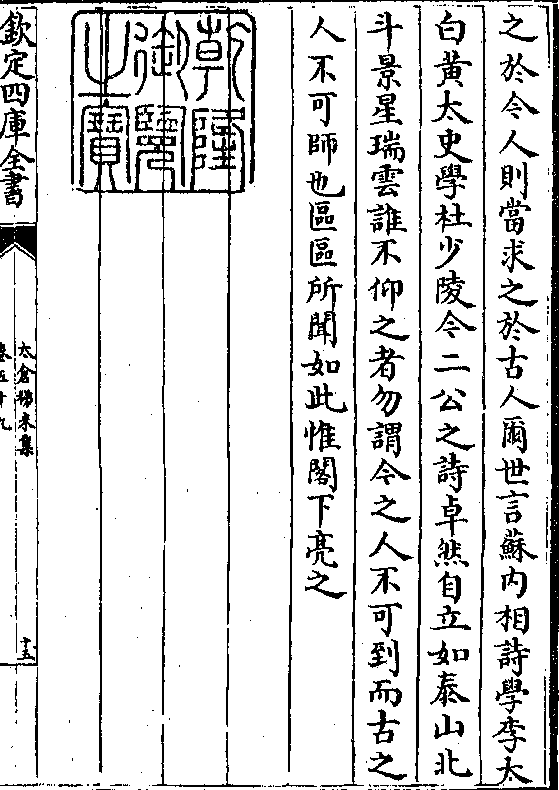 之於今人則當求之於古人爾世言蘇内相詩學李太
白黄太史學杜少陵今二公之詩卓然自立如泰山北
斗景星瑞雲誰不仰之者勿謂今之人不可到而古之
人不可師也區區所聞如此惟閣下亮之
乾隆
御覽
之寶
欽定四庫全書
太倉稊米集
卷五十九
十五